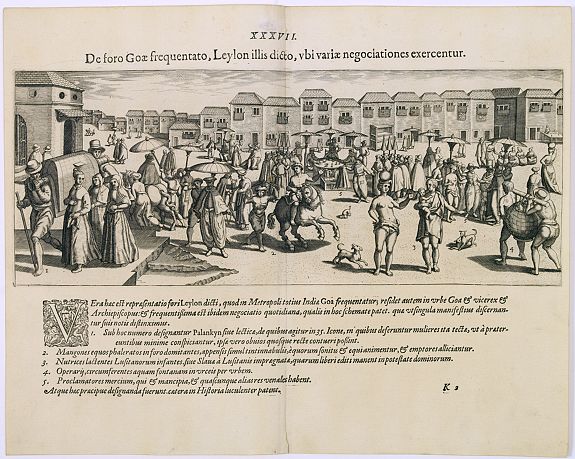 XXXVII.
De foro Goæ frequentato, Leylon illis dicto, vbi variæ negociationes exercentur.
1
2
3
4
5
VEra hæc est repræsentatio fori Leylon dicti, quod in Metropoli totius Indiæ Goa frequentatur; residet autem in vrbe Goa & vicerex &
Archiepiscopus: & frequentissima est ibidem negociatio quotidiana, qualis in hoc schemate patet. quæ vt singula manifestius discernan-
tur suis notis distinximus.
1. Sub hoc numero designantur Palankyn siue lecticæ, de quibus agitur in 35. Icone, in quibus deferuntur mulieres ita tectæ, vt à præter-
euntibus minime conspiciantur, ipsæ vero obuios quosque recte contueri possint.
2. Mangones equos phaleratos in foro domitantes, appensis simul tintinnabulis, equorum sonitu & equi animentur, & emptores alliciantur.
3. Nutrices lactentes Lusitanorum infantes siue Slauæ à Lusitanis imprægnatæ, quarum liberi editi manent in potestate dominorum.
4. Operarij, circumferentes aquam fontanam in vrceis per vrbem.
5. Proclamatores mercium, qui & mancipia, & quascunque alias res venales habent.
Atque hæc præcipue designanda fuerunt. cætera in Historia luculenter patent.
K 2